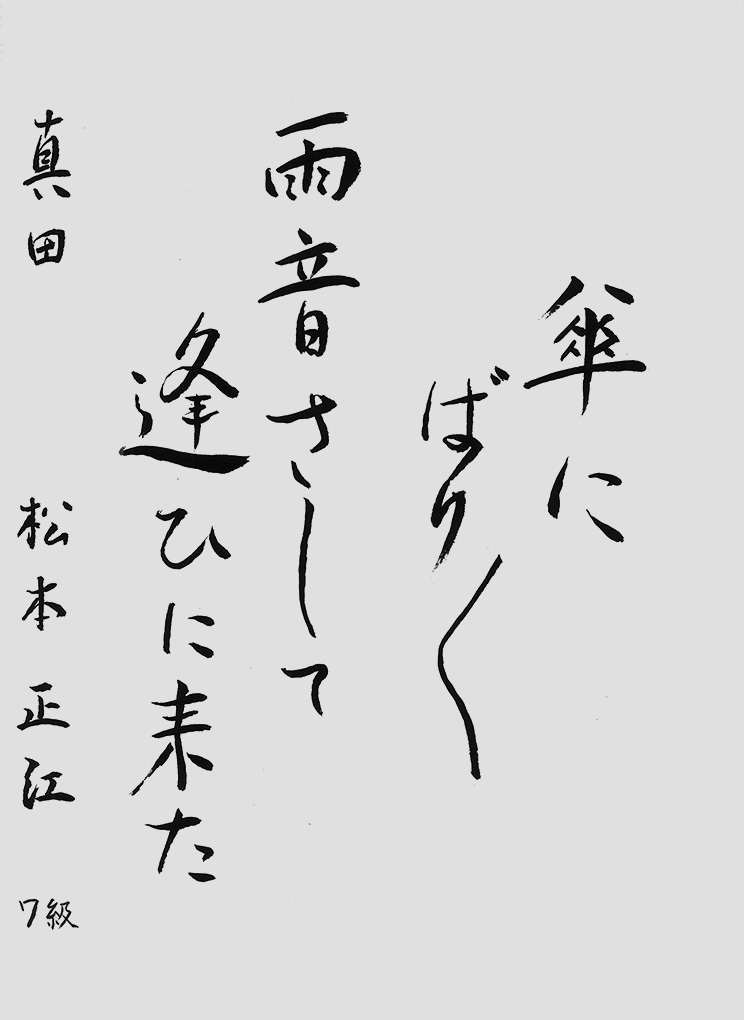 傘に
ばり〱
雨音さして
逢ひに来た
真田 松本正江 7級